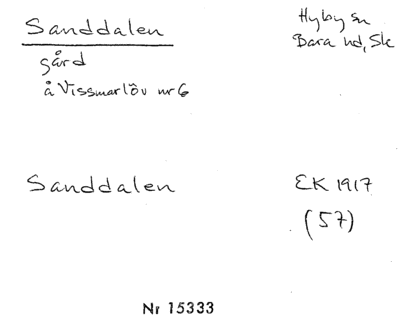 Sanddalen
gård
å Vissmarlöv nr 6
Hyby sn
Bara hd, Sk
Sanddalen
EK 1917
(57)
Nr 15333